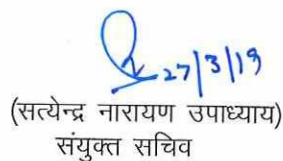 27/3/19
(सत्येन्द्र नारायण उपाध्याय)
संयुक्त सचिव